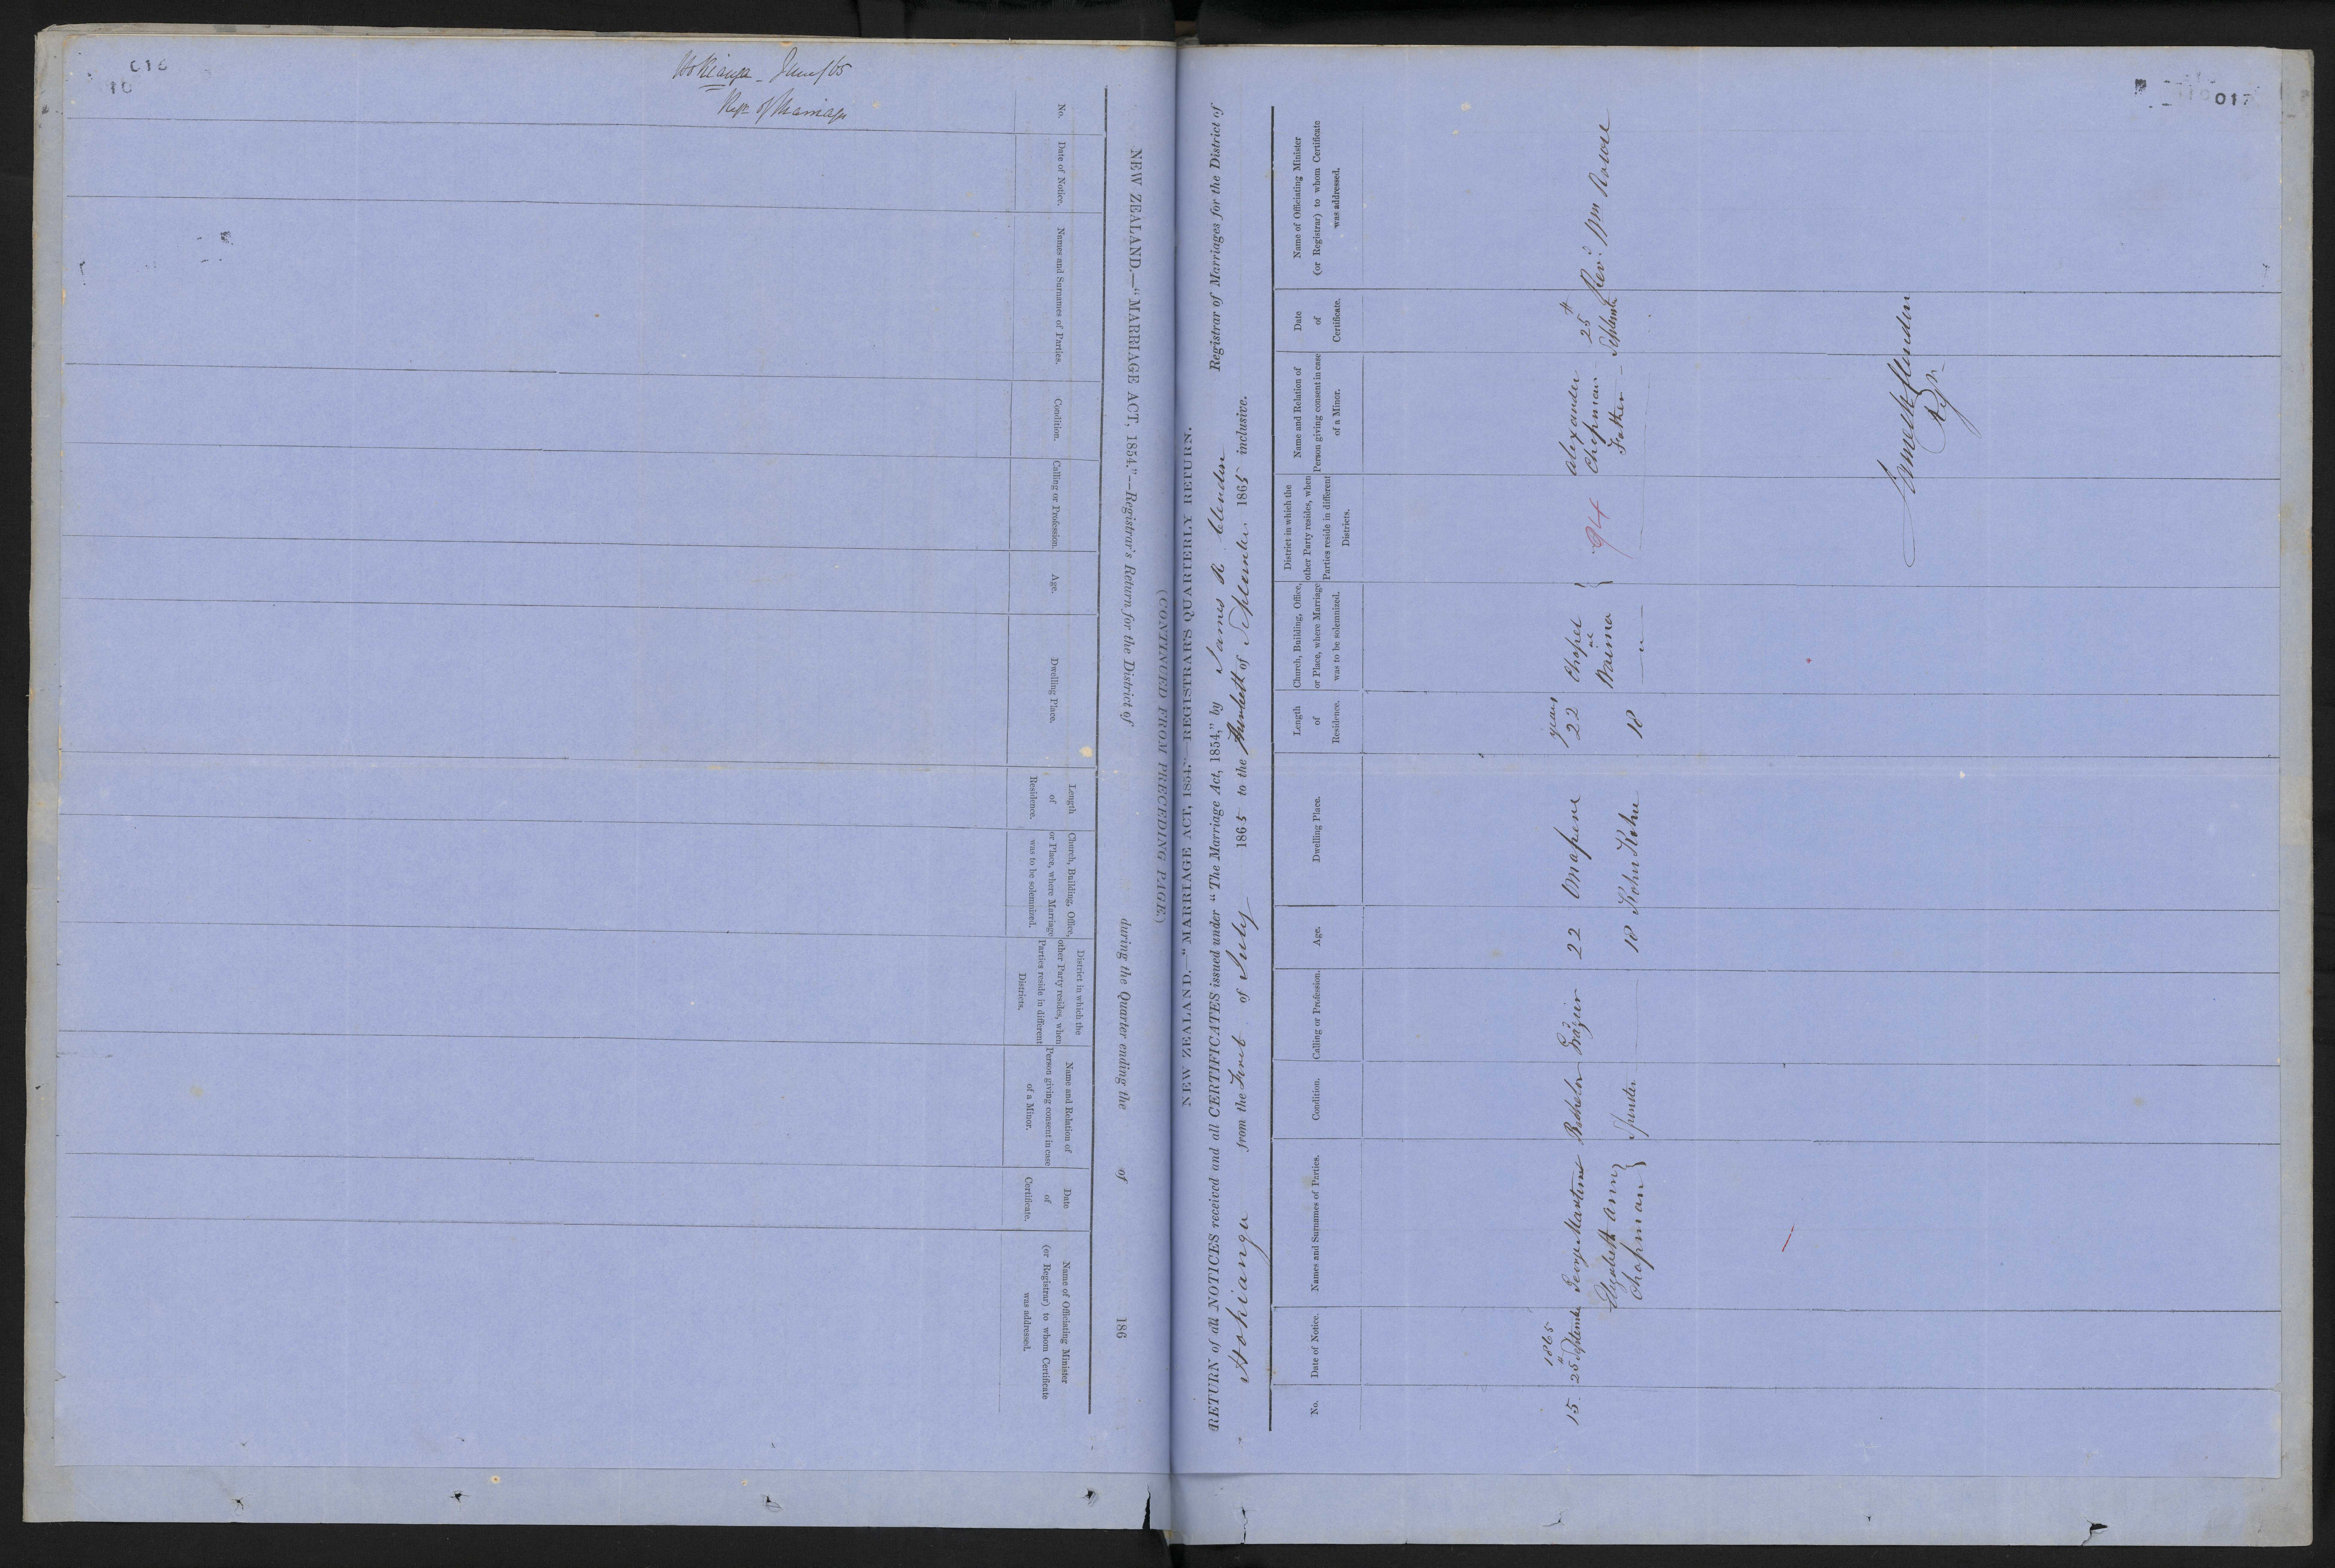 016
10
Hokianga - June/65
Regr of Marriages
NEW ZEALAND.—"MARRIAGE ACT, 1854."—Registrar's Return for the District of during the Quarter ending the of 186
No.
Date of Notice.
Names and Surnames of Parties.
Condition.
Calling or Profession.
Age.
Dwelling Place.
Length
of
Residence.
Church, Building, Office,
or Place, where Marriage
was to be solemnized.
District in which the
other Party resides, when
Parties reside in different
Districts.
Name and Relation of
Person giving consent in case
of a Minor.
Date
of
Certificate.
Name of Officiating Minister
(or Registrar) to whom Certificate
was addressed.
(CONTINUED FROM PRECEDING PAGE.)
017
NEW ZEALAND.—"MARRIAGE ACT, 1854."—REGISTRAR'S QUARTERLY RETURN.
RETURN of all NOTICES received and all CERTIFICATES issued under "The Marriage Act, 1854," by James R Clendon Registrar of Marriages for the District of
Hokianga from the First of July 1865 to the thirtieth of September 1865 inclusive.
No.
Date of Notice.
Names and Surnames of Parties.
Condition.
Calling or Profession.
Age.
Dwelling Place.
Length
of
Residence.
Church, Building, Office,
or Place, where Marriage
was to be solemnized.
District in which the
other Party resides, when
Parties reside in different
Districts.
Name and Relation of
Person giving consent in case
of a Minor.
Date
of
Certificate.
Name of Officiating Minister
(or Registrar) to whom Certificate
was addressed.
15.
1865
25 September
George Martin
Elizabeth Ann
Chapman
Bachelor
Spinster
Grazier
22
18
Omapere
Kohu Kohu
years
22
18
Chapel
at
Waima
"
94
Alexander
Chapman
Father
25th
September
Revd. Wm Rowse
James R Clendon
Regr